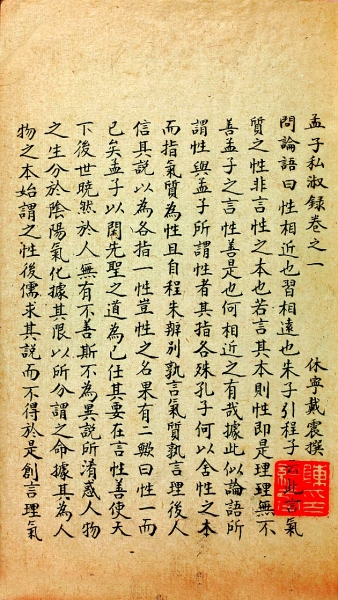 孟子私淑錄卷之一
休寧戴震撰
問論語曰性相近也習相遠也朱子引程子云此言氣
質之性非言性之本也若言其本則性即是理理無不
善孟子之言性善是也何相近之有哉據此似論語所
謂性與孟子所謂性者其指各殊孔子何以舍性之本
而指氣質為性且自程朱辦別孰言氣質孰言理後人
信其說以為各指一性豈性之名果有二歟曰性一而
已矣孟子以閑先聖之道為己任其要在言性善使天
下後世曉然於人無有不善斯不為異說所淆惑人物
之生分於陰陽氣化據其限以所分謂之命據其為人
物之本始謂之性後儒求其說而不得於是創言理氣